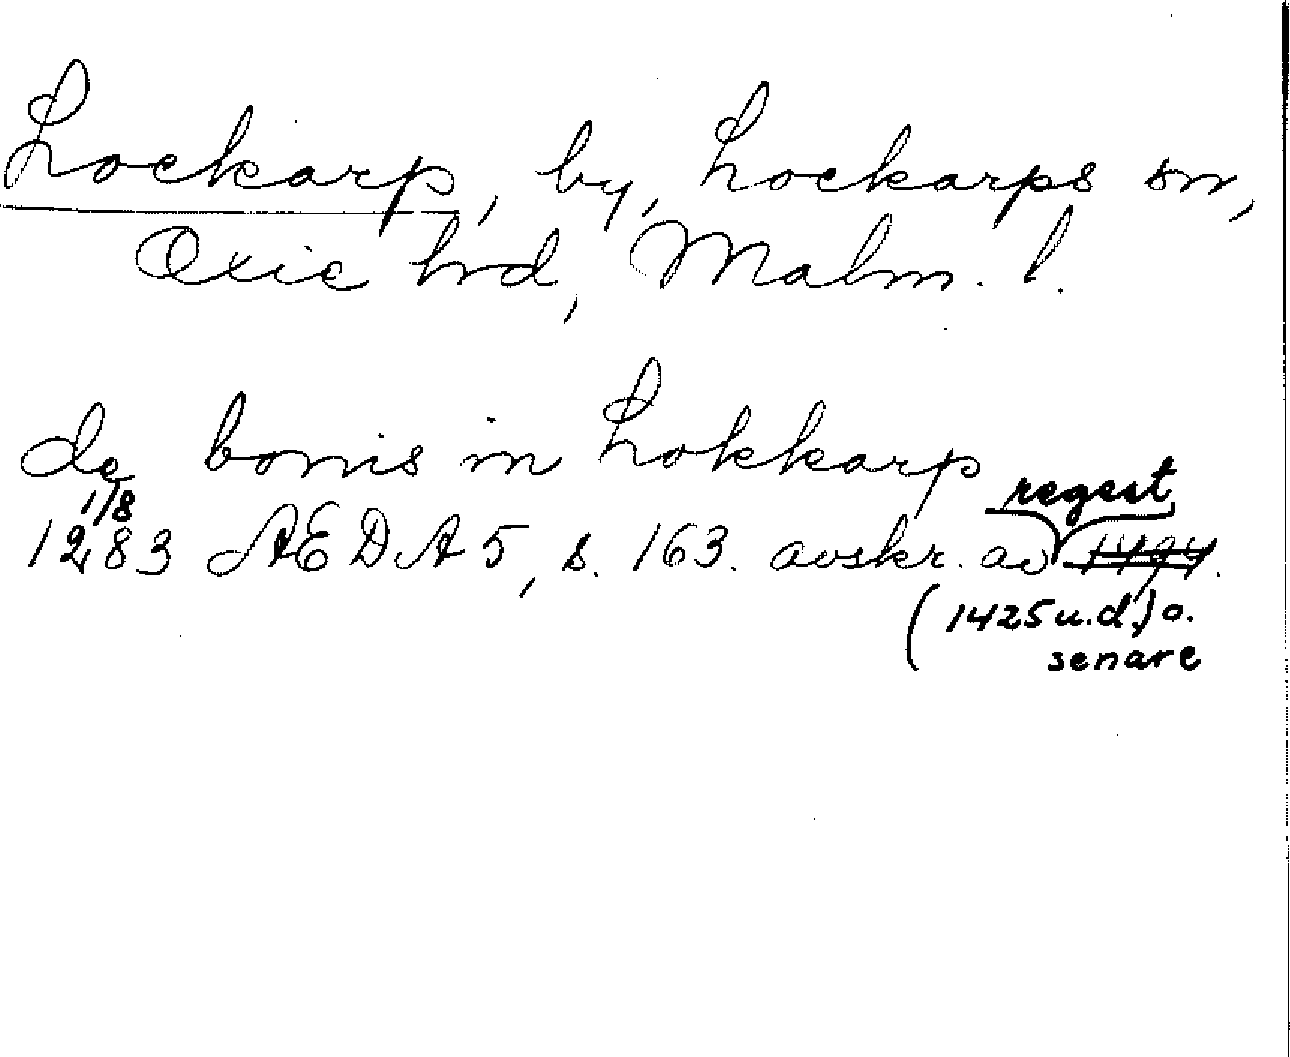 Lockarp, by, Lockarps sn,
Oxie hrd, Malm. l.
de bonis in Lokkarp
1/8 regest
1283 AEDA 5, s. 163. avskr. av 1494.
(1425 u.d.) o.
senare